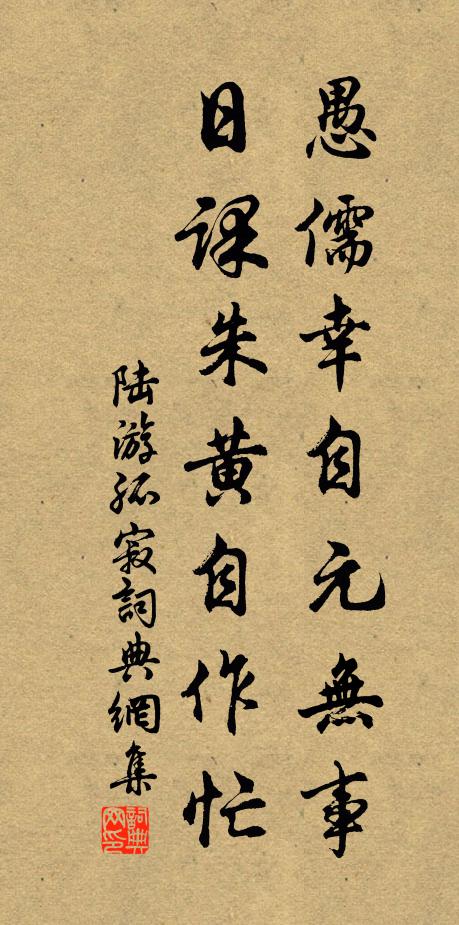 愚儒幸自元無事
日課朱黄自作忙
陆游孤寂詞典網集
詞典
网印